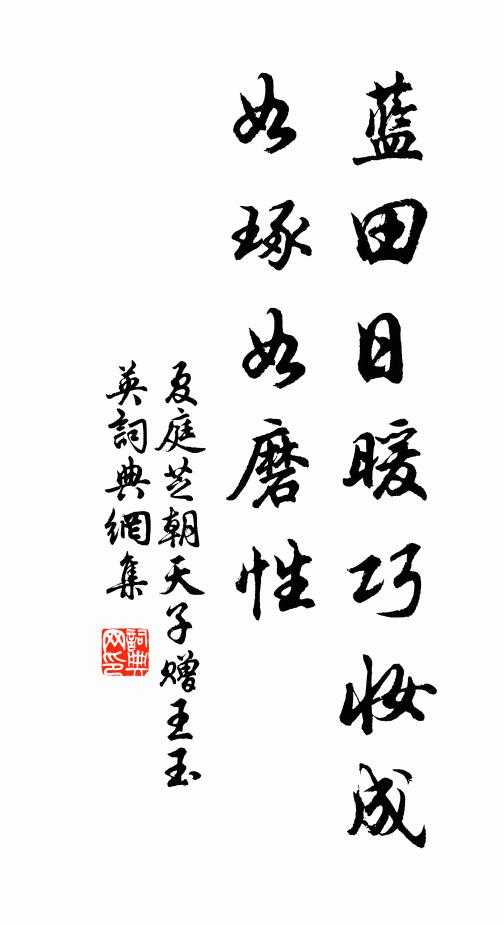 藍田日暖巧妝成
如琢如磨性
夏庭芝朝天子赠王玉
英詞典網集
詞典网印